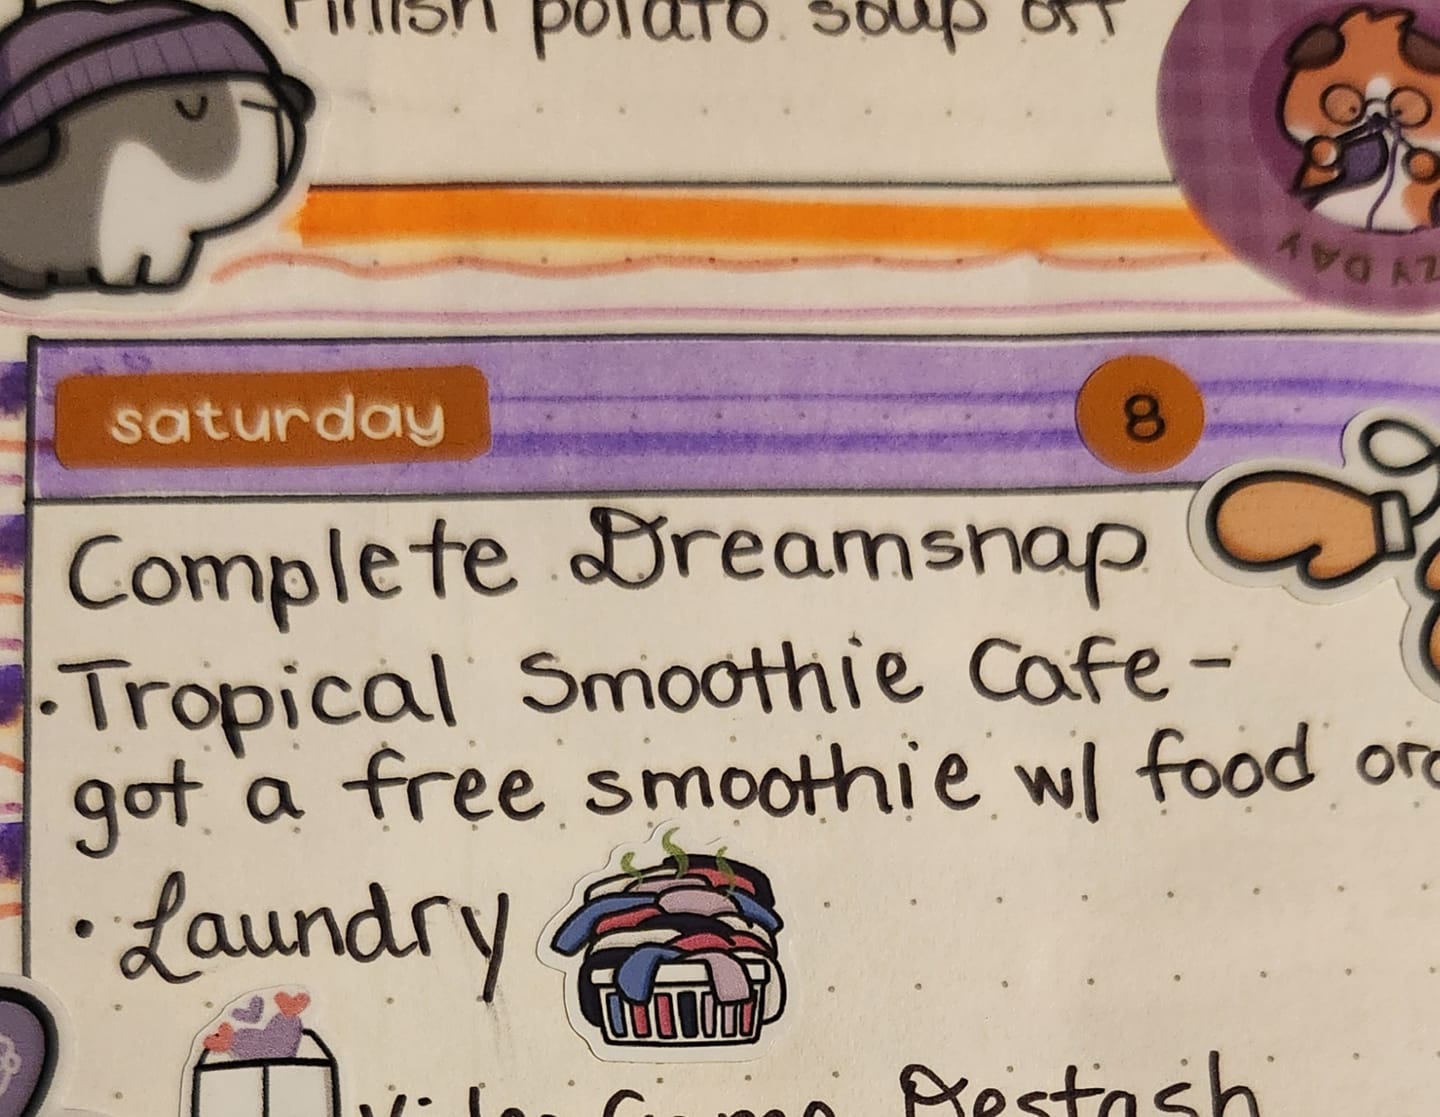 Finish potato soup off
ZY DAY
saturday
8
Complete Dreamsnap
• Tropical Smoothie Cafe -
got a free smoothie w/ food
• Laundry
Game Destash